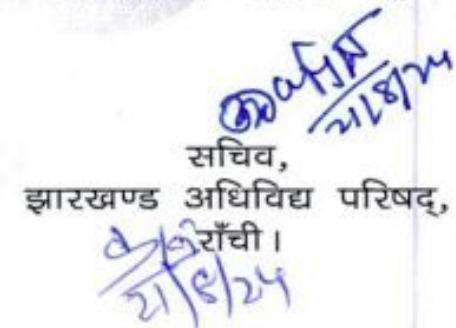 21/8/24
सचिव,
झारखण्ड अधिविद्य परिषद्,
राँची।
21/8/24